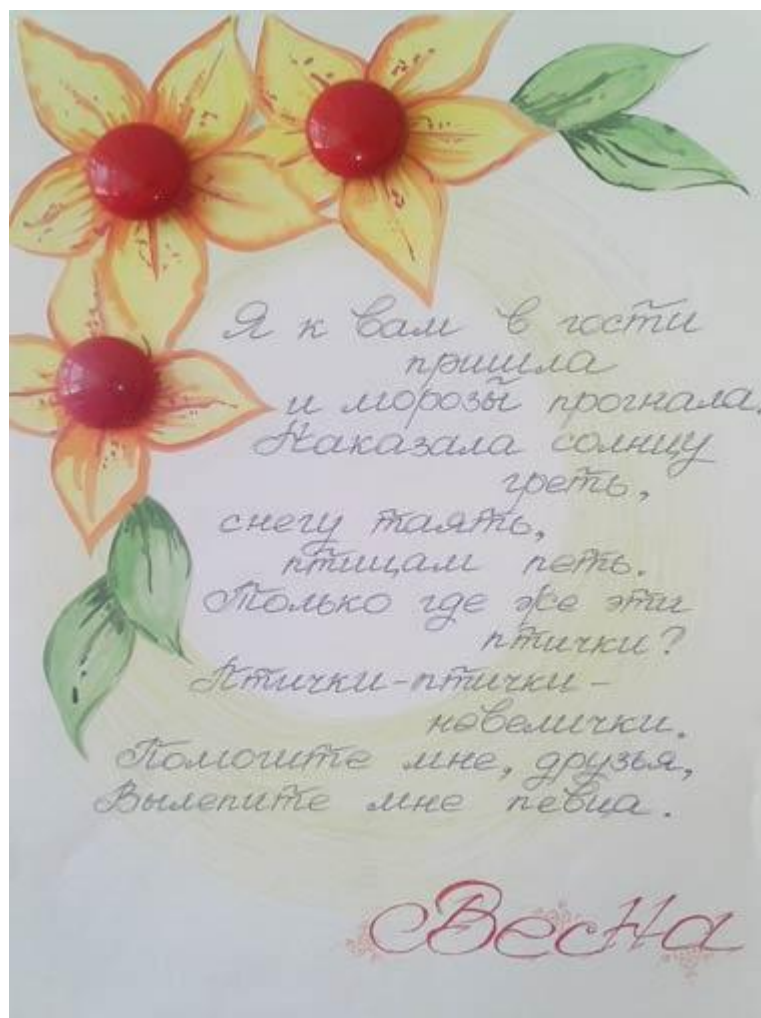 Я к вам в гости
пришла
и морозы прогнала.
Наказала солнцу
греть,
снегу таять,
птицам петь.
Только где же эти
птички?
Птички-птички-
невелички.
Помогите мне, друзья,
Вылепите мне певца.
Весна